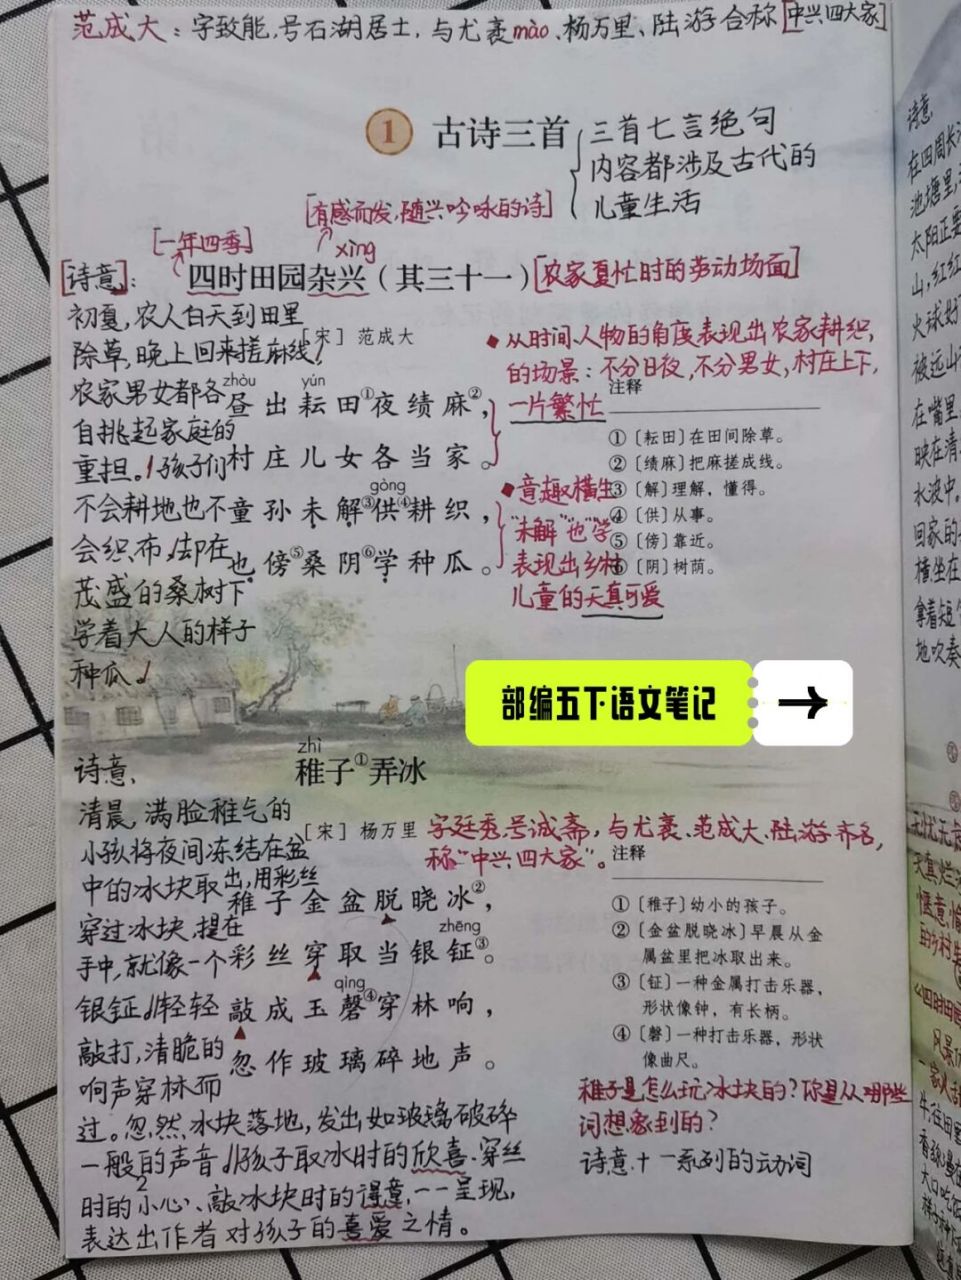 范成大：字致能，号石湖居士，与尤袤mào、杨万里、陆游合称[中兴四大家]
1 古诗三首
三首七言绝句
内容都涉及古代的
儿童生活
[有感而发，随兴吟咏的诗]
[一年四季]
xìng
[诗意]：
四时田园杂兴（其三十一）
[农家夏忙时的劳动场面]
[宋] 范成大
初夏，农人白天到田里
除草，晚上回来搓麻线。
农家男女都各
自挑起家庭的
重担。孩子们
不会耕地也不
会织布，却在
茂盛的桑树下
学着大人的样子
种瓜。
zhòu yún
昼出耘田①夜绩麻②，
村庄儿女各当家。
gòng
童孙未解③供④耕织，
也傍⑤桑阴⑥学种瓜。
从时间、人物的角度表现出农家耕织，
的场景：不分日夜，不分男女，村庄上下，
一片繁忙
意趣横生
“未解”“也”“学”
表现出乡村
儿童的天真可爱
注释
①〔耘田〕在田间除草。
②〔绩麻〕把麻搓成线。
③〔解〕理解，懂得。
④〔供〕从事。
⑤〔傍〕靠近。
⑥〔阴〕树荫。
部编五下语文笔记 →
zhì
稚子①弄冰
[宋] 杨万里
字廷秀，号诚斋，与尤袤、范成大、陆游齐名，
称“中兴四大家”。
诗意，
清晨，满脸稚气的
小孩将夜间冻结在盆
中的冰块取出，用彩丝
穿过冰块，提在
手中，就像一个
银钲。轻轻
敲打，清脆的
响声穿林而
过。忽然，冰块落地，发出如玻璃破碎
一般的声音。孩子取冰时的欣喜、穿丝
时的小心、敲冰块时的得意，一一呈现，
表达出作者对孩子的喜爱之情。
稚子金盆脱晓冰②，
zhēng
彩丝穿取当银钲③。
qìng
敲成玉磬④穿林响，
忽作玻璃碎地声。
注释
①〔稚子〕幼小的孩子。
②〔金盆脱晓冰〕早晨从金
属盆里把冰取出来。
③〔钲〕一种金属打击乐器，
形状像钟，有长柄。
④〔磬〕一种打击乐器，形状
像曲尺。
稚子是怎么玩冰块的？你是从哪些
词想象到的？
诗意+一系列的动词
诗意，
在四周长
池塘里，
太阳正要
山，红红
火球好
被远山
在嘴里
映在清
水波中。
回家的
横坐在
拿着短
地吹奏
无忧无
天真烂
惬意、愉
的乡村
四时田园
风景
一家人
牛，往田
大口吃